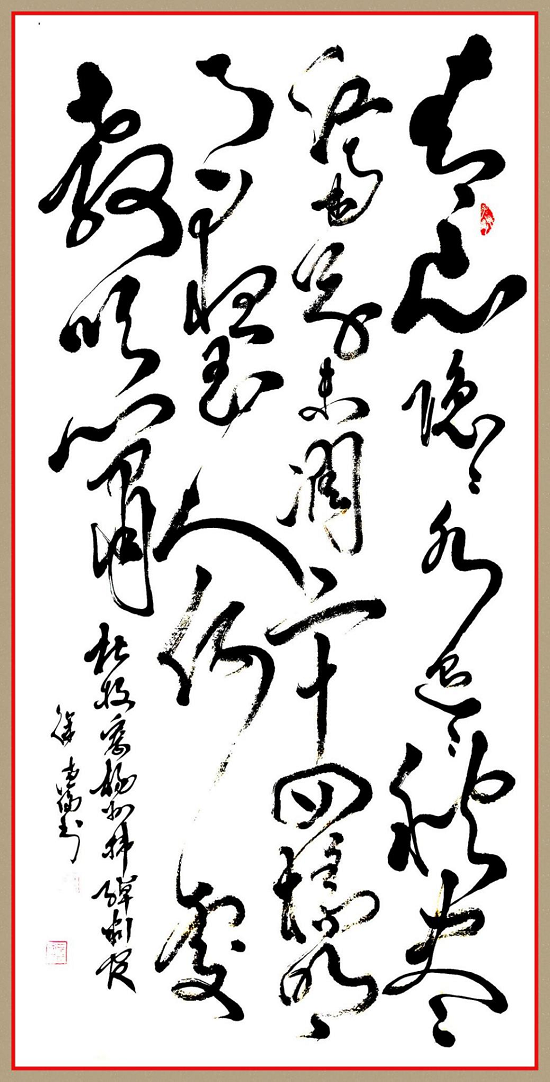 青山隐々水迢々秋尽
江南草未凋二十四桥明
月夜玉人何处
教吹箫
杜牧寄扬州韩绰判官
徐